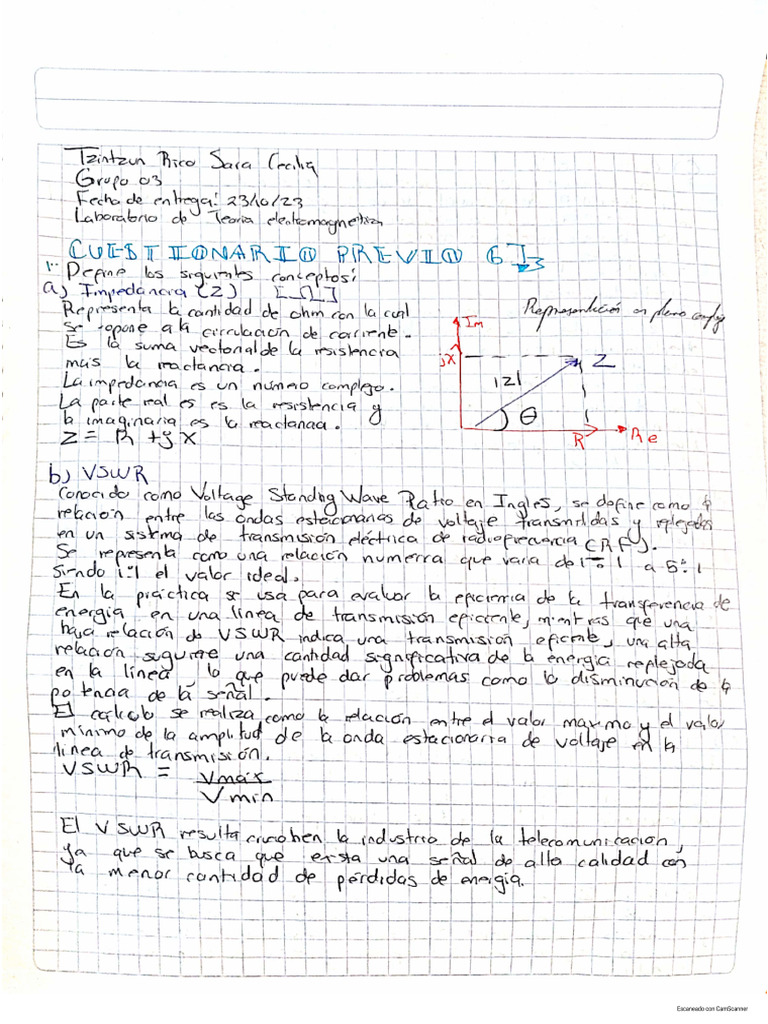 Tzintzun Rico Sara Cecilia
Grupo 03
Fecha de entrega: 23/10/23
Laboratorio de Teoria electromagnetica
CUESTIONARIO PREVIO 6
1.- Define los siguientes conceptos:
a) Impedancia (Z) [Ω]
Representa la cantidad de ohm con la cual
se opone a la circulación de corriente.
Es la suma vectorial de la resistencia
mais la reactancia.
La impedancia es un número complejo.
La parte real es es la resistencia y
la imaginaria es la reactanaa.
Z = R + j X
Representación en plano
Im
jX
Z
|Z|
θ
R
Re
b) VSWR
Conocido como Voltage Standing Wave Ratio en Ingles, se define como la
relación entre las ondas estacionarias de voltaje transmitidas y reflejadas
en un sistema de transmisión eléctrica de radiofrecuencia (RF).
Se representa como una relación numerica que varia de 1:1 a 5:1
Siendo 1:1 el valor ideal.
En la práctica se usa para evaluar la eficiencia de la transferencia de
energía en una línea de transmisión eficiente, mientras que una
baja relación de VSWR indica una transmisión eficiente, una alta
relación sugiere una cantidad significativa de la energia reflejada
en la línea lo que puede dar problemas como la disminución de la
potencia de la señal.
El calculo se realiza como la relación entre el valor maximo y el valor
mínimo de la amplitud de la onda estacionaria de voltaje en la
línea de transmisión.
VSWR = Vmáx
Vmin
El VSWR resulta en la industria de la telecomunicación,
ya que se busca que exista una señal de alta calidad con
la menor cantidad de pérdidas de energía.
Escaneado con CamScanner